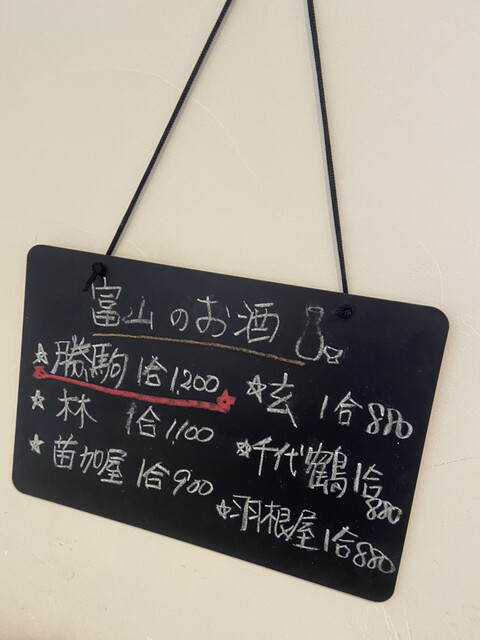 富山のお酒
☆勝駒 1合1,200
☆林 1合1100
★苗加屋 1合900
☆玄 1合880
☆千代鶴 1合880
☆羽根屋 1合880